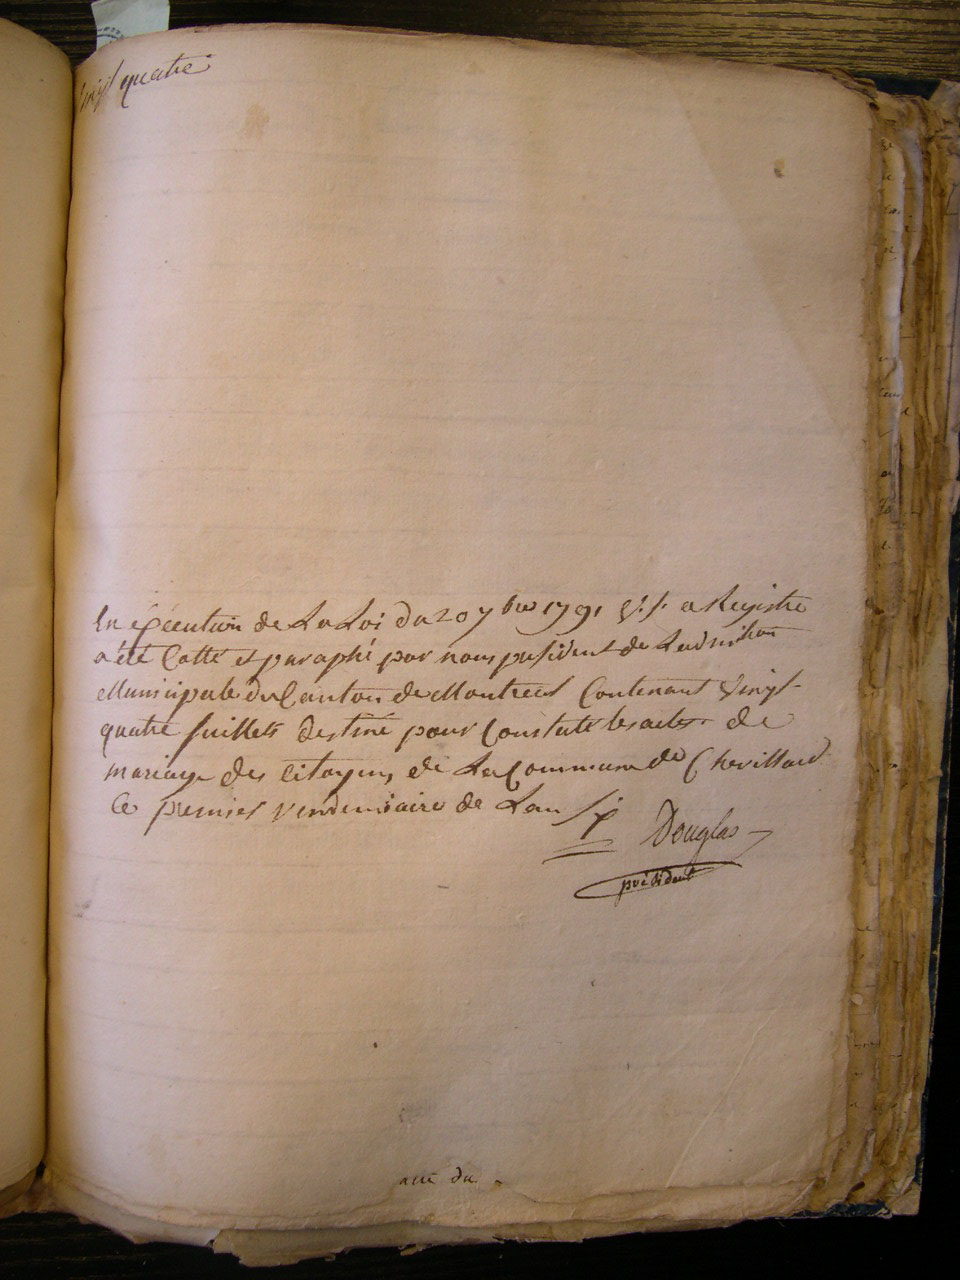 vingt quatre
En éxécution de La Loi du 20 7bre 1791 V.S. ce Registre
a été Cotté et paraphé par nous president de Ladm̃on
Municipale du Canton de Montreal Contenant Vingt
quatre feuillets destiné pour Constater les actes de
mariage des Citoyens de La Commune de Chevillard
Ce premier vendemiaire de Lan
Douglas
président
du